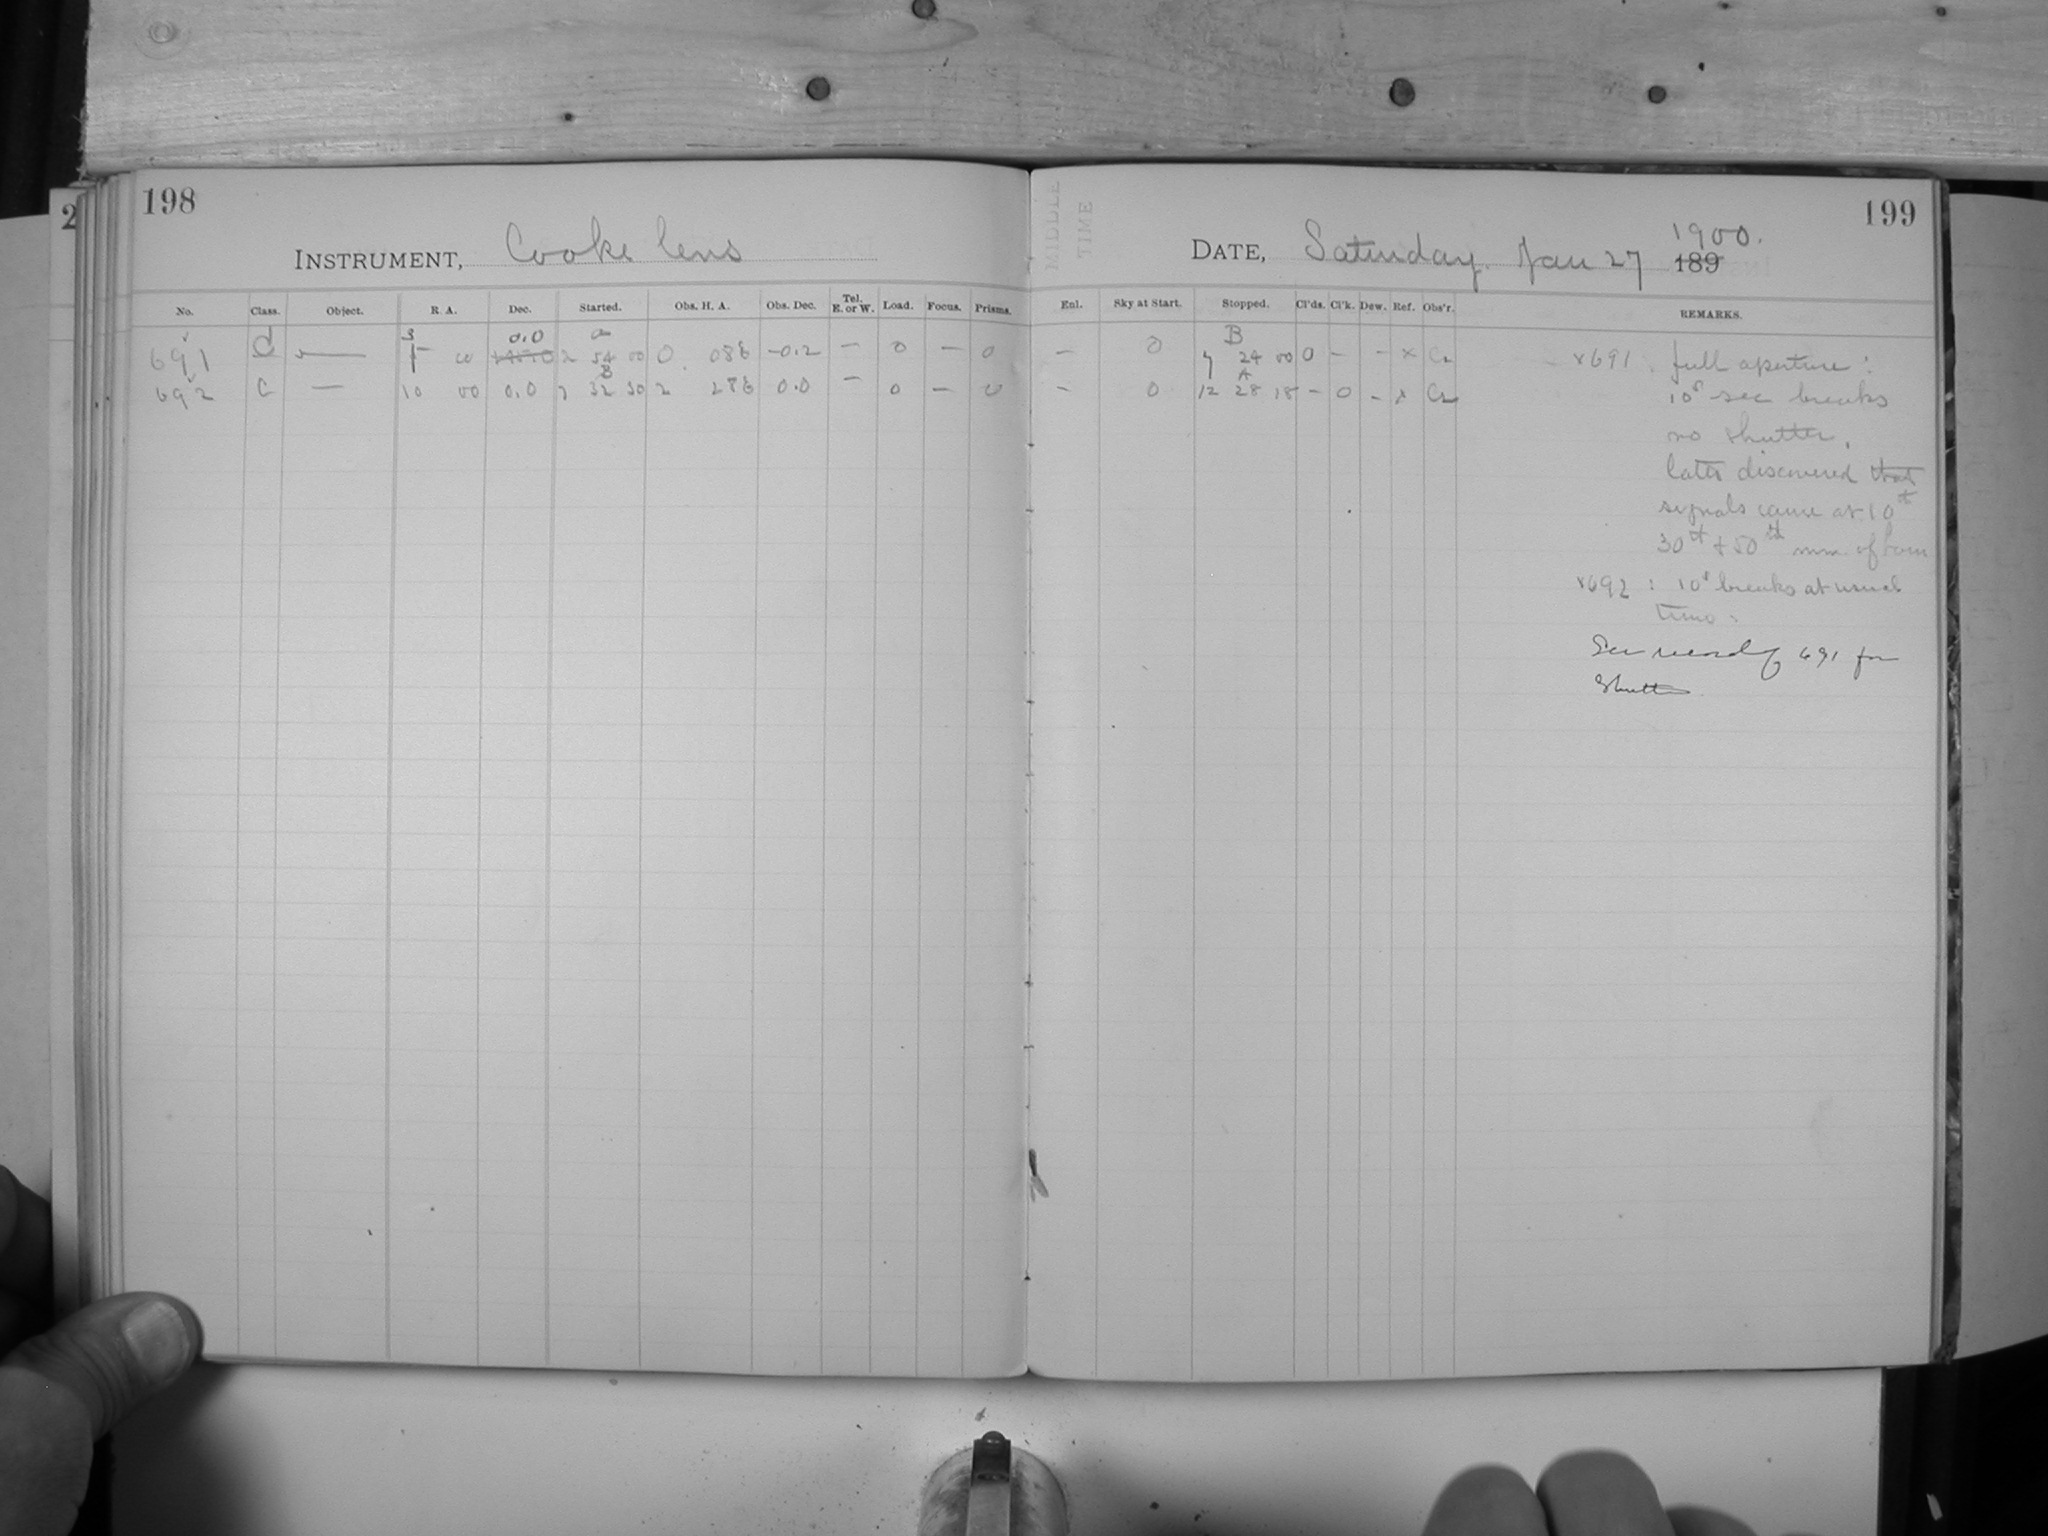 198
INSTRUMENT, Cooke lens
No. Class. Object. R. A. Dec. Started. Obs. H. A. Obs. Dec. Tel. E. or W. Load. Focus. Prisms.
691 C — 5 00 0.0 2 54 00 0 08 -0.2 — 0 — 0
692 C — 10 00 0.0 7 32 30 2 28 0.0 — 0 — 0
199
DATE, Saturday. Jan 27 1900. 189
Enl. Sky at Start. Stopped. Cl'ds. Cl'k. Dew. Ref. Obs'r. REMARKS.
B
— 0 7 24 00 0 — — x
A
— 0 12 28 18 — 0 — x
691. full aperture:
10s sec breaks
no shutter.
later discovered that
signals came at 10th
30th + 50th min. of hour
692: 10s breaks at usual
time:
See record of 691 for
Shutter.
2
MIDDLE
TIME